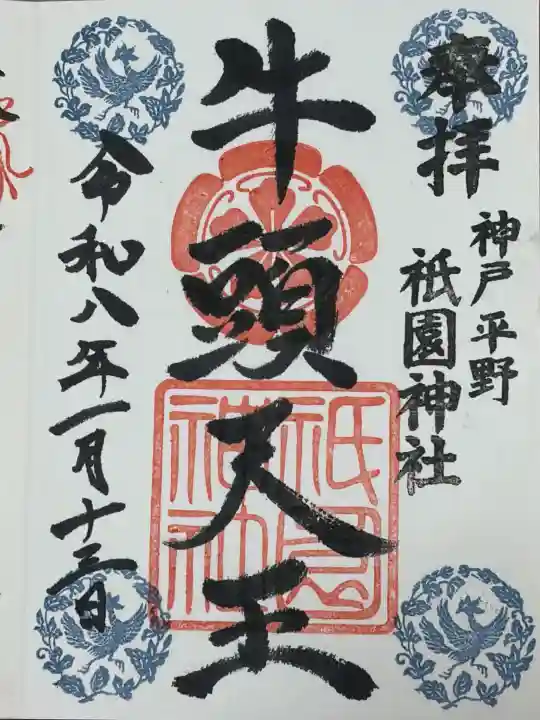 奉拝
神戸平野
祇園神社
牛頭天王
祇園
神社
令和八年一月十三日